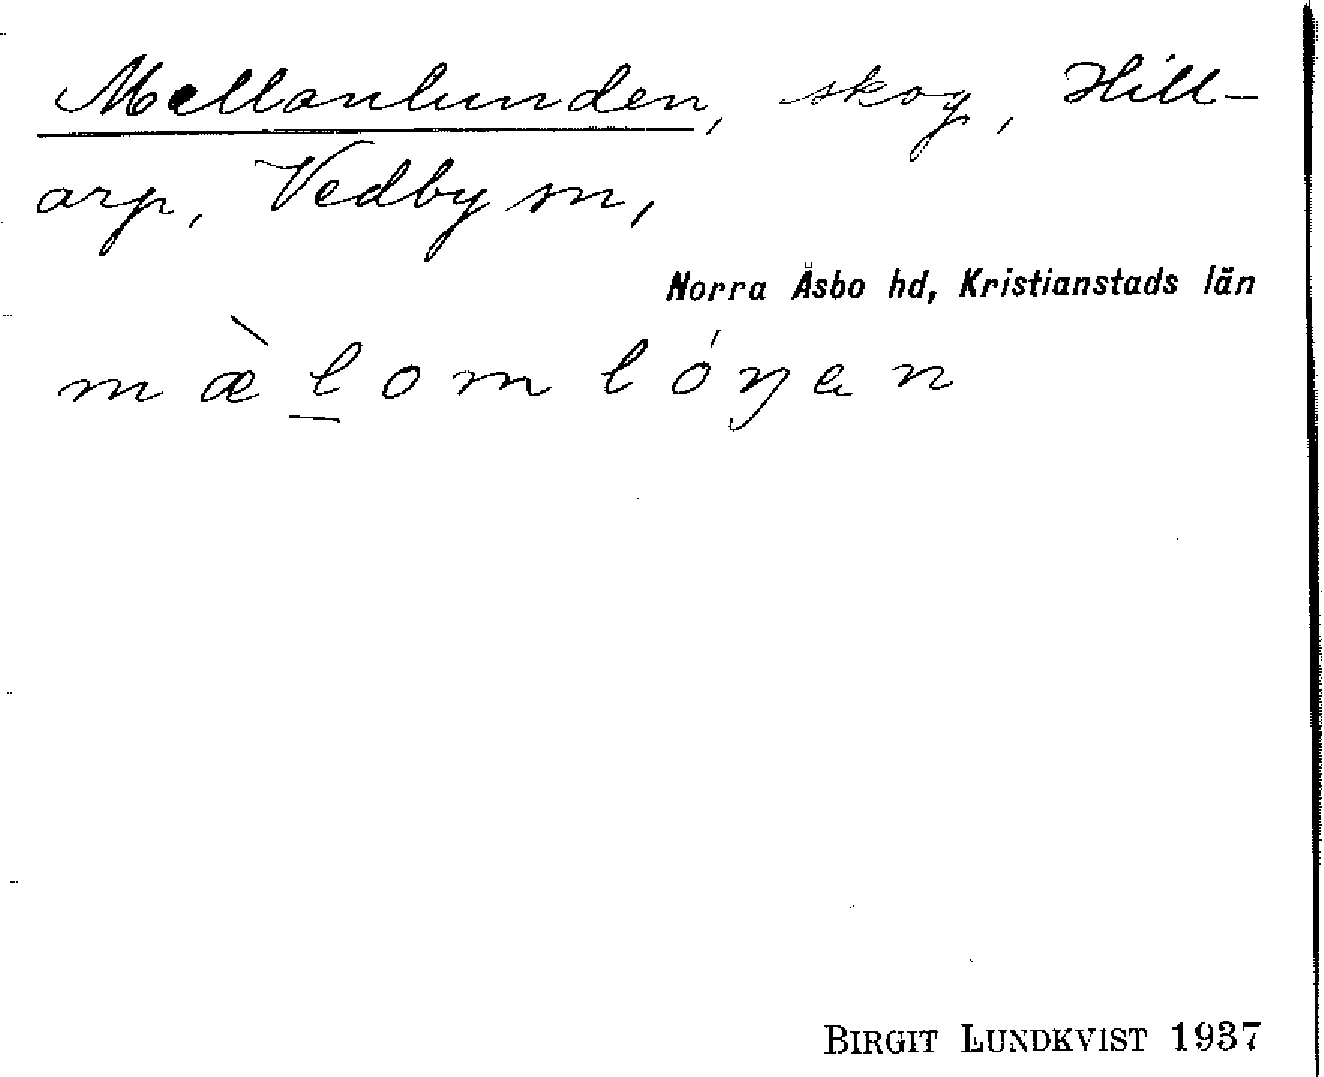 Mellanlunden, skog, Hill-
arp, Vedby sn,
Norra Åsbo hd, Kristianstads län
m æ̀ l̲ o m l ó ŋ a n
BIRGIT LUNDKVIST 1937